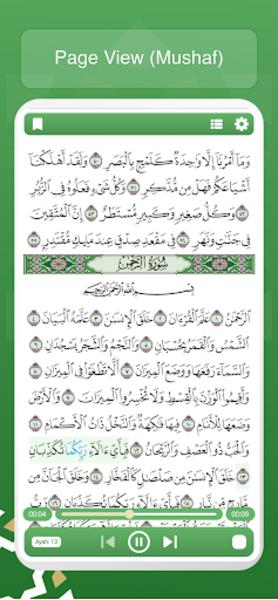 Page View (Mushaf)
وَمَآ أَمْرُنَآ إِلَّا وَٰحِدَةٌ كَلَمْحٍۭ بِٱلْبَصَرِ ٥٠ وَلَقَدْ أَهْلَكْنَآ
أَشْيَاعَكُمْ فَهَلْ مِن مُّدَّكِرٍ ٥١ وَكُلُّ شَىْءٍ فَعَلُوهُ فِى ٱلزُّبُرِ
٥٢ وَكُلُّ صَغِيرٍ وَكَبِيرٍ مُّسْتَطَرٌ ٥٣ إِنَّ ٱلْمُتَّقِينَ
فِى جَنَّٰتٍ وَنَهَرٍ ٥٤ فِى مَقْعَدِ صِدْقٍ عِندَ مَلِيكٍ مُّقْتَدِرٍۭ ٥٥
سُورَةُ الرَّحْمَٰن
بِسْمِ ٱللَّهِ ٱلرَّحْمَٰنِ ٱلرَّحِيمِ
ٱلرَّحْمَٰنُ ١ عَلَّمَ ٱلْقُرْءَانَ ٢ خَلَقَ ٱلْإِنسَٰنَ ٣ عَلَّمَهُ ٱلْبَيَانَ ٤
ٱلشَّمْسُ وَٱلْقَمَرُ بِحُسْبَانٍ ٥ وَٱلنَّجْمُ وَٱلشَّجَرُ يَسْجُدَانِ ٦
وَٱلسَّمَآءَ رَفَعَهَا وَوَضَعَ ٱلْمِيزَانَ ٧ أَلَّا تَطْغَوْا۟ فِى ٱلْمِيزَانِ ٨
وَأَقِيمُوا۟ ٱلْوَزْنَ بِٱلْقِسْطِ وَلَا تُخْسِرُوا۟ ٱلْمِيزَانَ ٩ وَٱلْأَرْضَ
وَضَعَهَا لِلْأَنَامِ ١٠ فِيهَا فَٰكِهَةٌ وَٱلنَّخْلُ ذَاتُ ٱلْأَكْمَامِ ١١
وَٱلْحَبُّ ذُو ٱلْعَصْفِ وَٱلرَّيْحَانُ ١٢ فَبِأَىِّ ءَالَآءِ رَبِّكُمَا تُكَذِّبَانِ
١٣ خَلَقَ ٱلْإِنسَٰنَ مِن صَلْصَٰلٍ كَٱلْفَخَّارِ ١٤ وَخَلَقَ ٱلْجَآنَّ مِن
مَّارِجٍ مِّن نَّارٍ ١٥ فَبِأَىِّ ءَالَآءِ رَبِّكُمَا تُكَذِّبَانِ ١٦
00:04
00:09
Ayah: 13